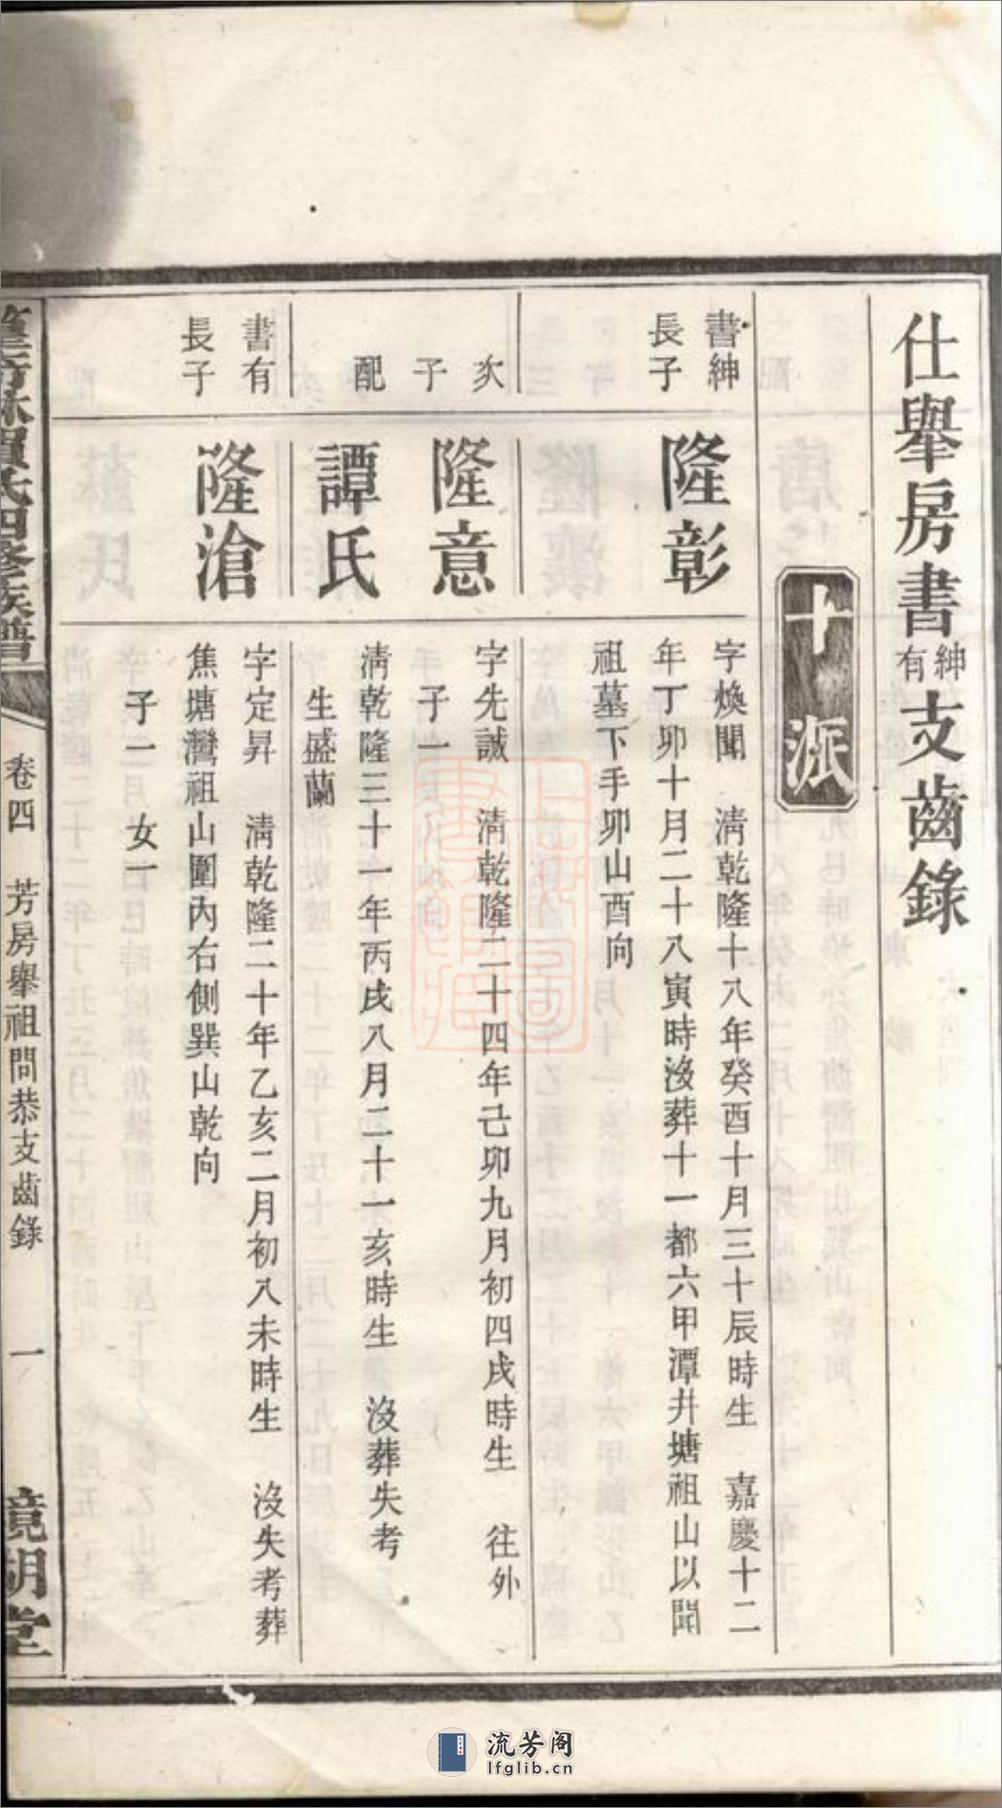 仕舉房書紳有支齒錄
十派
書紳
長子
隆彰
字煥聞 清乾隆十八年癸酉十月三十辰時生 嘉慶十二
年丁卯十月二十八寅時沒葬十一都六甲潭井塘祖山以聞
祖墓下手卯山酉向
次
子
隆意
字先誠 清乾隆二十四年己卯九月初四戌時生 往外
子一
配
譚氏
清乾隆三十一年丙戌八月二十一亥時生 沒葬失考
生盛蘭
書有
長子
隆滄
字定昇 清乾隆二十年乙亥二月初八未時生 沒失考葬
焦塘灣祖山圍內右側巽山乾向
子一 女一
賀氏四修族譜
卷四 芳房舉祖問恭支齒錄 一
鏡湖堂
流芳阁
lfglib.cn